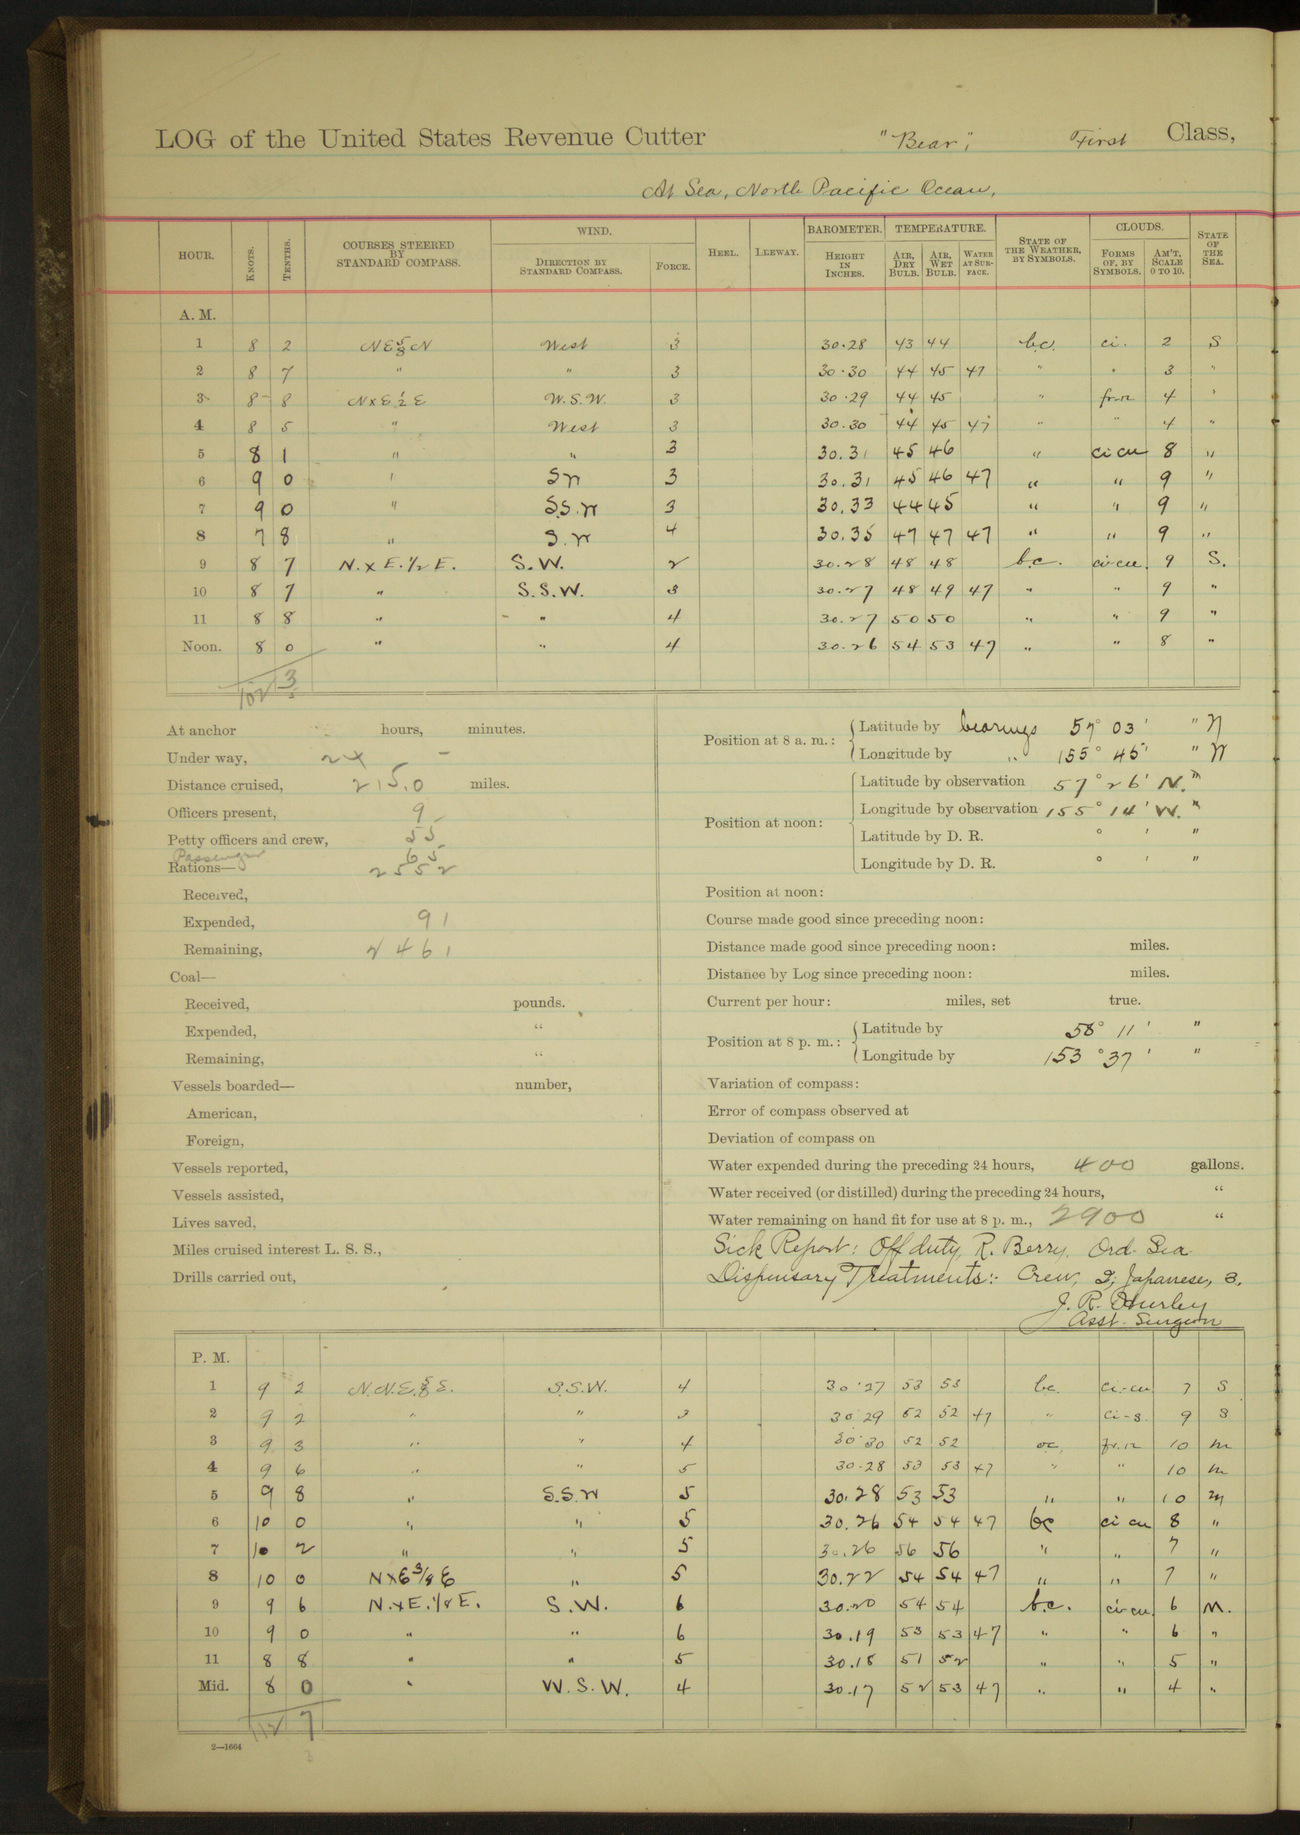 LOG of the United States Revenue Cutter "Bear", First Class,
At Sea, North Pacific Ocean,
HOUR. KNOTS. TENTHS. COURSES STEERED BY STANDARD COMPASS. WIND. DIRECTION BY STANDARD COMPASS. FORCE. HEEL. LEEWAY. BAROMETER. HEIGHT IN INCHES. TEMPERATURE. AIR, DRY BULB. AIR, WET BULB. WATER AT SURFACE. STATE OF THE WEATHER, BY SYMBOLS. CLOUDS. FORMS OF, BY SYMBOLS. AM'T, SCALE 0 TO 10. STATE OF THE SEA.
A. M.
1 8 2 NE 5/8 N West 3 30.28 43 44 b.c. ci. 2 S
2 8 7 " " 3 30.30 44 45 47 " " 3 "
3 8 8 NxE 1/2 E W.S.W. 3 30.29 44 45 " fr.n 4 "
4 8 5 " West 3 30.30 44 45 47 " " 4 "
5 8 1 " " 3 30.31 45 46 " ci cu 8 "
6 9 0 " SW 3 30.31 45 46 47 " " 9 "
7 9 0 " S.S.W 3 30.33 44 45 " " 9 "
8 7 8 " S.W 4 30.35 47 47 47 " " 9 "
9 8 7 N.xE. 1/2 E. S.W. 2 30.28 48 48 b.c. ci-cu. 9 S.
10 8 7 " S.S.W. 3 30.27 48 49 47 " " 9 "
11 8 8 " " 4 30.27 50 50 " " 9 "
Noon. 8 0 " " 4 30.26 54 53 47 " " 8 "
102 3
At anchor hours, minutes.
Under way, 24 –
Distance cruised, 215.0 miles.
Officers present, 9
Petty officers and crew, 55
Passenger 65
Rations— 2552
Received,
Expended, 91
Remaining, 2461
Coal—
Received, pounds.
Expended, "
Remaining, "
Vessels boarded— number,
American,
Foreign,
Vessels reported,
Vessels assisted,
Lives saved,
Miles cruised interest L. S. S.,
Drills carried out,
Position at 8 a. m.: Latitude by bearings 57° 03' " N
Longitude by " 155° 45' " W
Position at noon: Latitude by observation 57° 26' N. "
Longitude by observation 155° 14' W. "
Latitude by D. R. ° ' "
Longitude by D. R. ° ' "
Position at noon:
Course made good since preceding noon:
Distance made good since preceding noon: miles.
Distance by Log since preceding noon: miles.
Current per hour: miles, set true.
Position at 8 p. m.: Latitude by 58° 11' "
Longitude by 153° 37' "
Variation of compass:
Error of compass observed at
Deviation of compass on
Water expended during the preceding 24 hours, 400 gallons.
Water received (or distilled) during the preceding 24 hours, "
Water remaining on hand fit for use at 8 p. m., 2900 "
Sick Report: Off duty, R. Berry, Ord. Sea
Dispensary Treatments:- Crew, 2; Japanese, 3.
J. R. Hurley
Asst. Surgeon
P. M.
1 9 2 N.N.E. 5/8 E. S.S.W. 4 30.27 53 53 bc. ci-cu 7 S
2 9 2 " " 3 30.29 52 52 47 " ci-s. 9 S
3 9 3 " " 4 30.30 52 52 oc, fr.n 10 m
4 9 6 " " 5 30.28 53 53 47 " " 10 m
5 9 8 " S.S.W 5 30.28 53 53 " " 10 m
6 10 0 " " 5 30.26 54 54 47 bc ci cu 8 "
7 10 2 " " 5 30.26 56 56 " " 7 "
8 10 0 NxE 3/8 E " 5 30.22 54 54 47 " " 7 "
9 9 6 N.xE. 1/8 E. S.W. 6 30.20 54 54 b.c. ci cu. 6 M.
10 9 0 " " 6 30.19 53 53 47 " " 6 "
11 8 8 " " 5 30.18 51 52 " " 5 "
Mid. 8 0 " W.S.W. 4 30.17 52 53 47 " " 4 "
112 7
2—1664